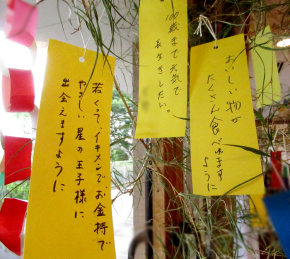 若くて、イケメンで、お金持で
やさしい星の王子様に
出会えますように
100歳まで元気で
長生きしたい。
おいしい物が
たくさん食べれます
ように